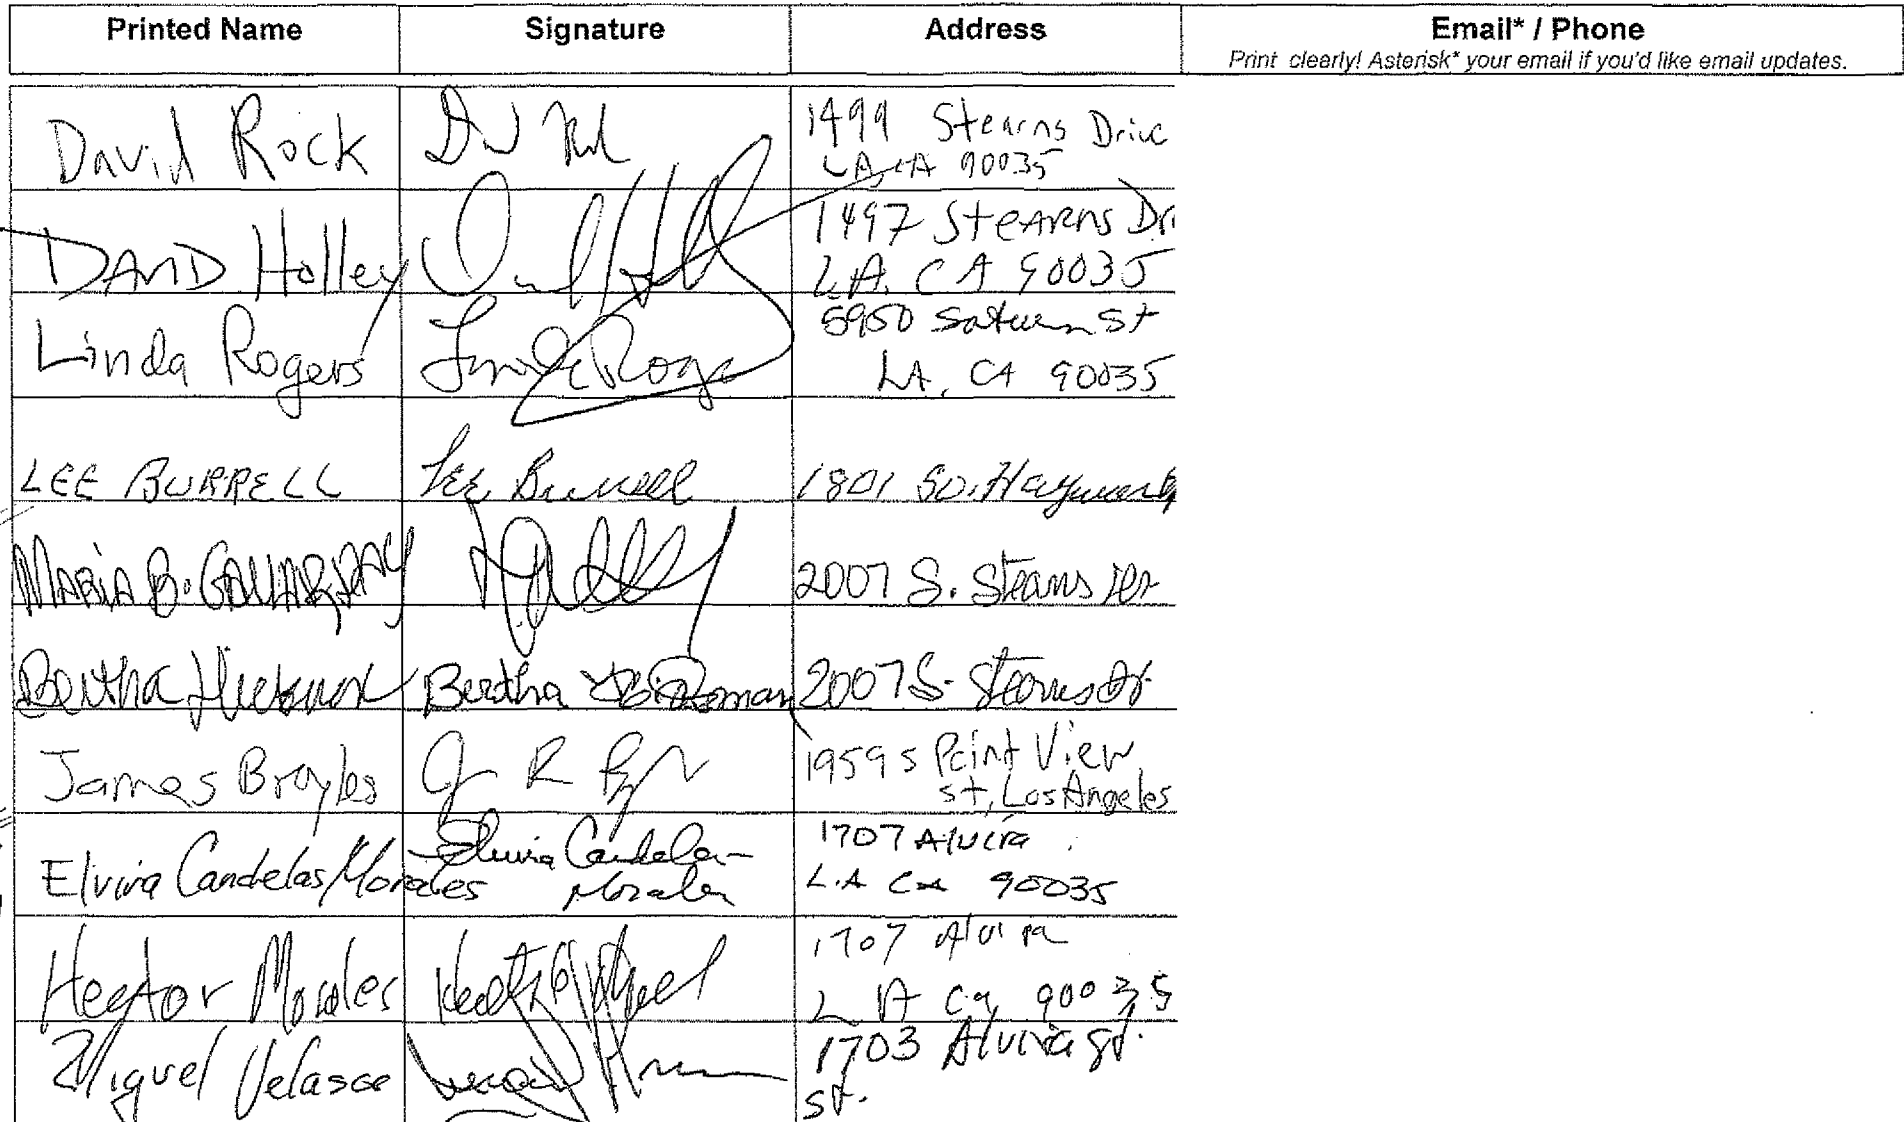 Printed Name Signature Address Email* / Phone
Print clearly! Asterisk* your email if you'd like email updates.
David Rock 1499 Stearns Drive
LA, CA 90035
DAVID Holley 1497 Stearns Dr
L.A. CA 90035
Linda Rogers Linda Roge 5950 Saturn St
LA, CA 90035
LEE BURRELL Lee Burrell 1801 So. Hayworth
MARIA B. 2007 S. Stearns Dr
Bertha Bertha 2007 S. Stearns Dr.
James Broyles J R 1959 S Point View
st, Los Angeles
Elvira Candelas Morales Elvira Candelas- 1707 Alvira
Morales L.A Ca 90035
Hector Morales 1707 Alvira
L A Ca 90035
Miguel Velasco 1703 Alvira st.
st.